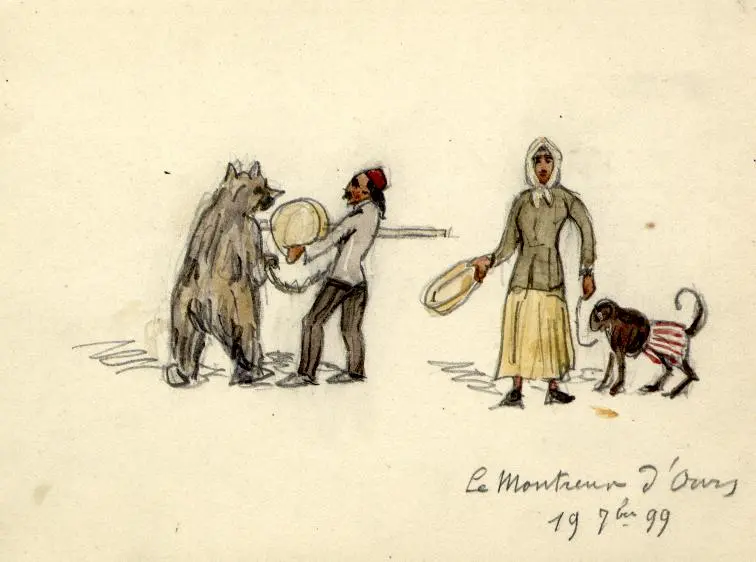 Le Montreur d'Ours
19 7bre 99